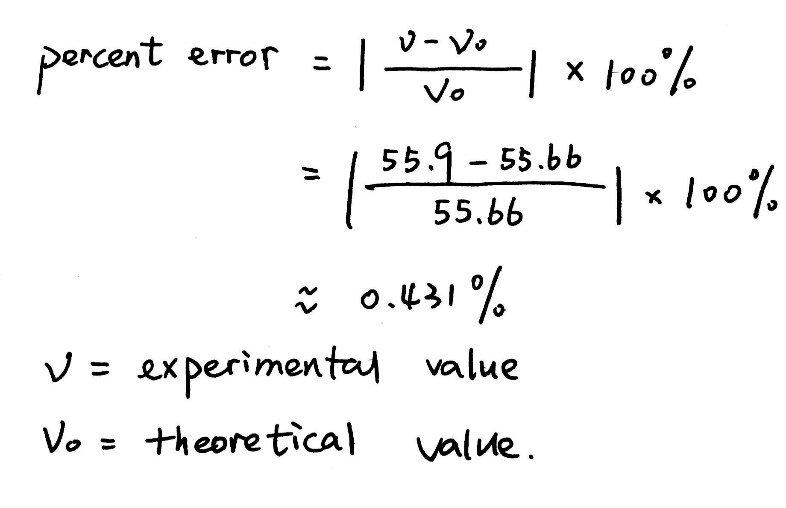 percent error = | (v - v₀) / v₀ | × 100%
= | (55.9 - 55.66) / 55.66 | × 100%
≈ 0.431%
v = experimental value
v₀ = theoretical value.